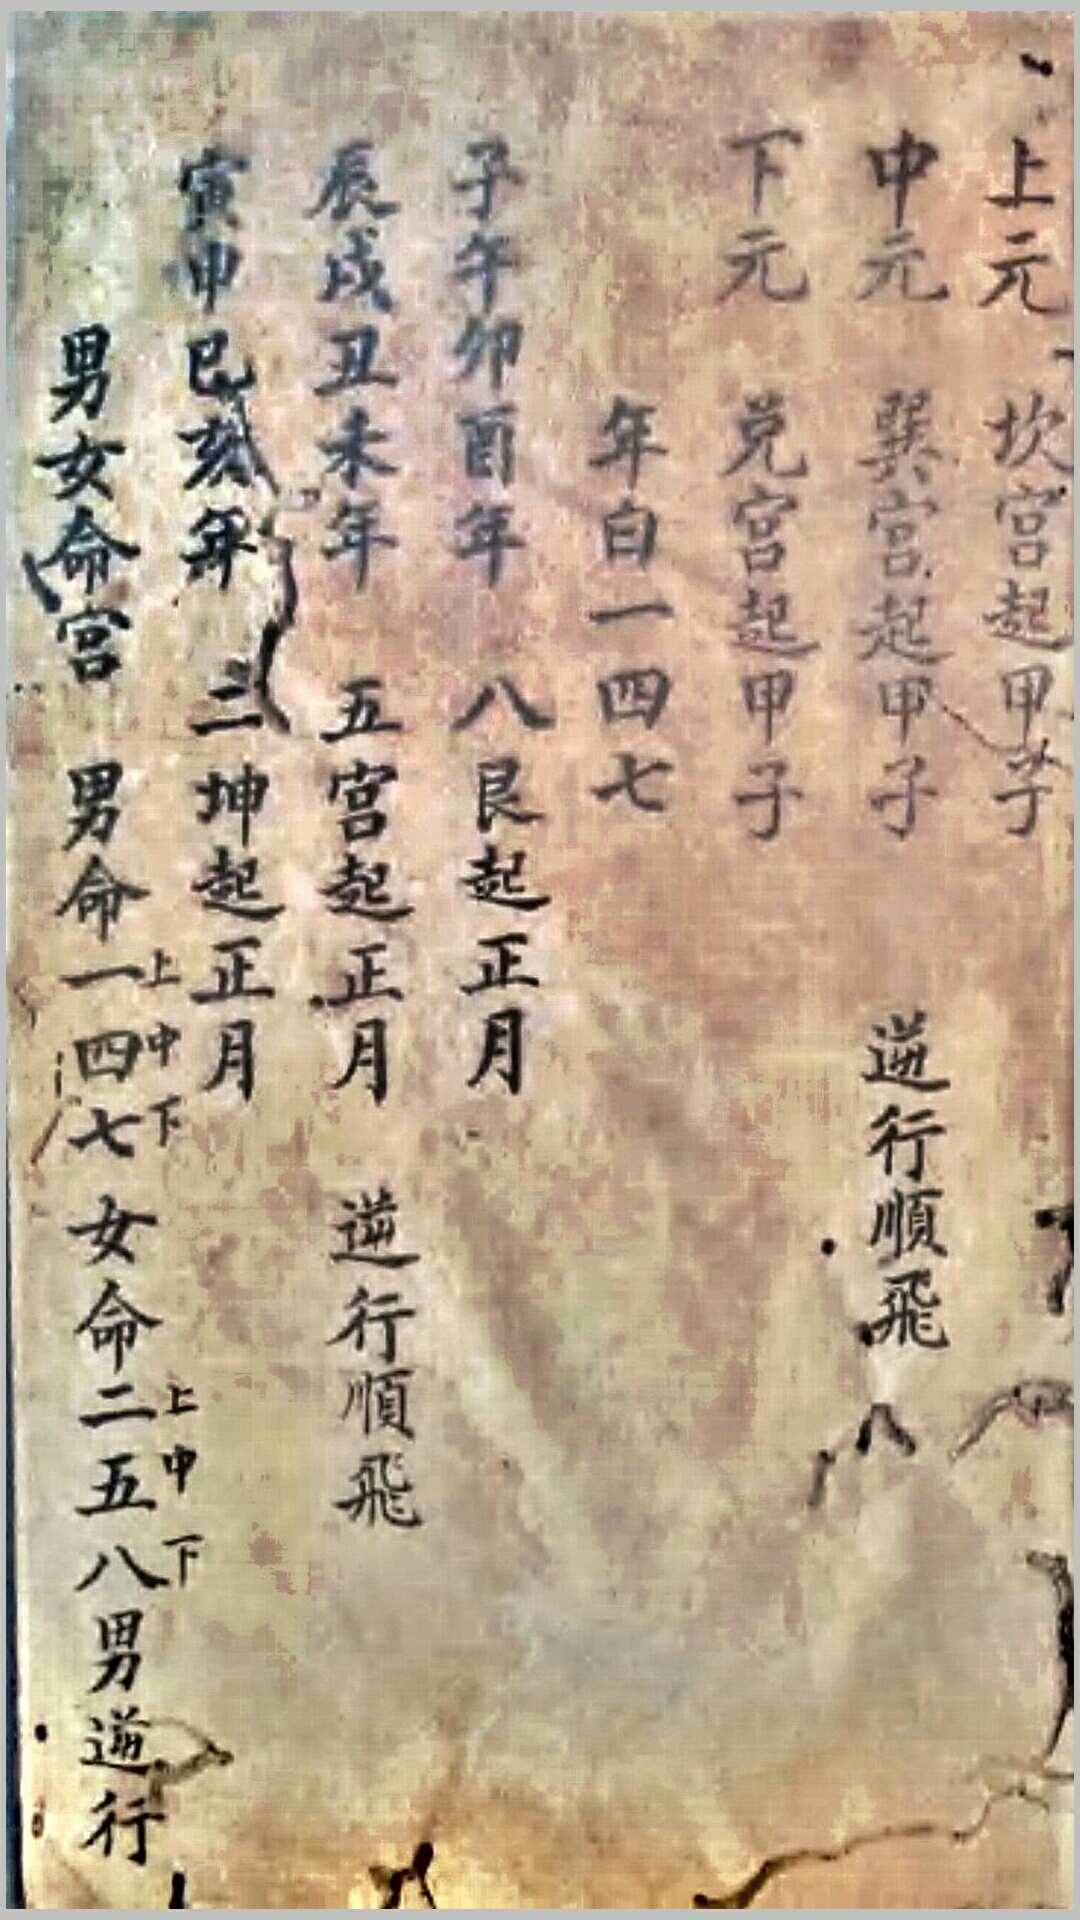 上元 坎宮起甲子
中元 巽宮起甲子 逆行順飛
下元 兌宮起甲子
年白一四七
子午卯酉年 八艮起正月
辰戌丑未年 五宮起正月 逆行順飛
寅申巳亥年 二坤起正月
男女命宮 男命一上四中七下 女命二上五中八下男逆行